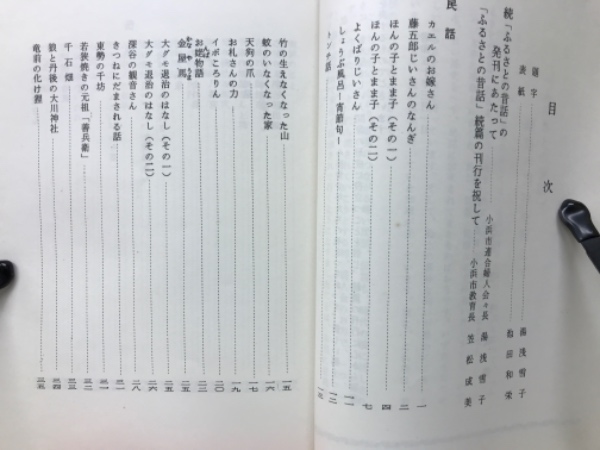 目次
題字 湯浅雪子
表紙 松田和栄
続「ふるさとの昔話」の
発刊にあたって 小浜市連合婦人会々長 湯浅雪子
「ふるさとの昔話」続篇の刊行を祝して 小浜市教育長 笠松成美
民話
カエルのお嫁さん 一
藤五郎じいさんのなんぎ 二
ほんの子とまま子(その一) 四
ほんの子とまま子(その二) 七
よくばりじいさん 一一
しょうぶ風呂ー宵節句ー 一二
トンチ話
竹の生えなくなった山 一五
蚊のいなくなった家 一六
天狗の爪 一七
お札さんの力 一九
イボころりん 二〇
お総物語 二二
金屋馬 二五
かなやうま
大グモ退治のはなし(その一) 二五
大グモ退治のはなし(その二) 二六
深谷の観音さん 二八
きつねにだまされる話 三一
東勢の千坊 三一
若狭焼きの元祖「善兵衛」 三二
千石畑 三三
狼と丹後の大川神社 三四
竜前の化け狸 三五